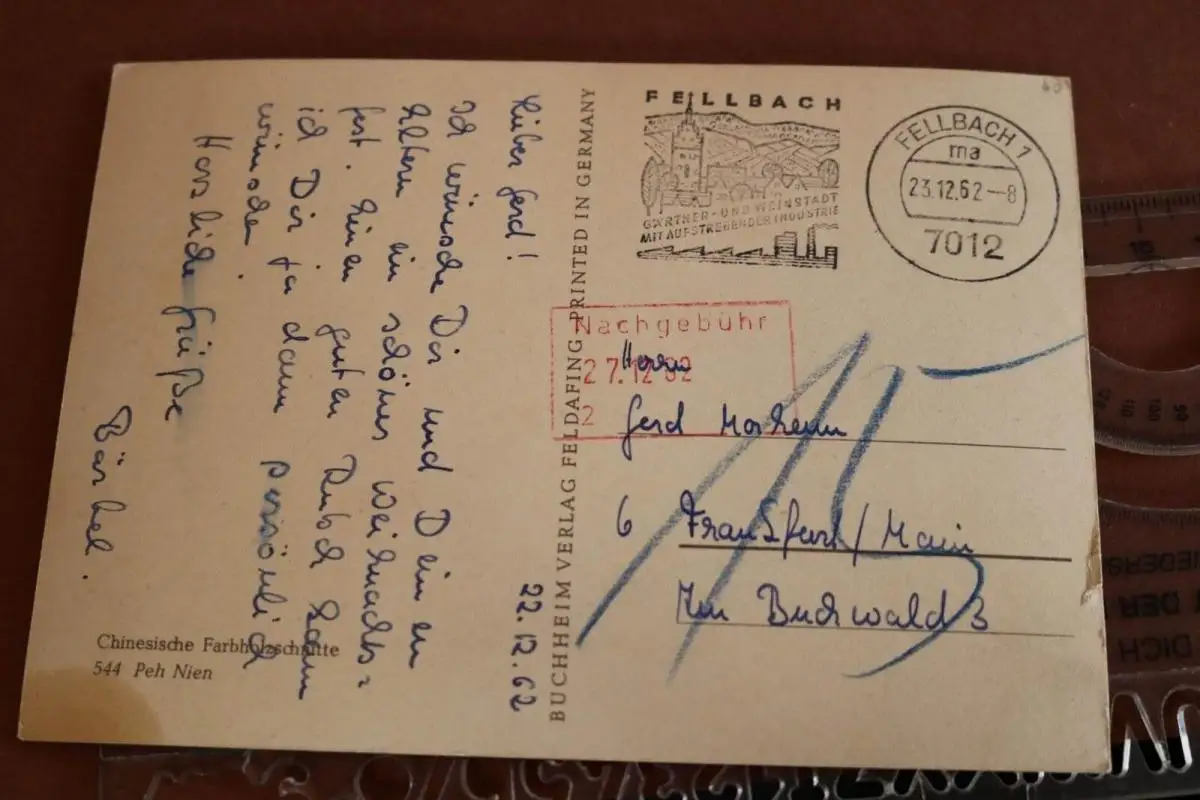 22.12.62
Lieber Gerd!
Ich wünsche Dir und Deinen
Eltern ein schönes Weihnachts=
fest. Einen guten Rutsch kann
ich Dir ja dann persönlich
wünschen.
Herzliche Grüße
Bärbel.
Chinesische Farbholzschnitte
544 Peh Nien
BUCHHEIM VERLAG FELDAFING PRINTED IN GERMANY
FELLBACH
GÄRTNER- UND WEINSTADT
MIT AUFSTREBENDER INDUSTRIE
FELLBACH 1
ma
23.12.62–8
7012
Nachgebühr
27.12 62
2
Herrn
Gerd
6 Frankfurt/Main
Im Buchwald 3
15
DER
DICH